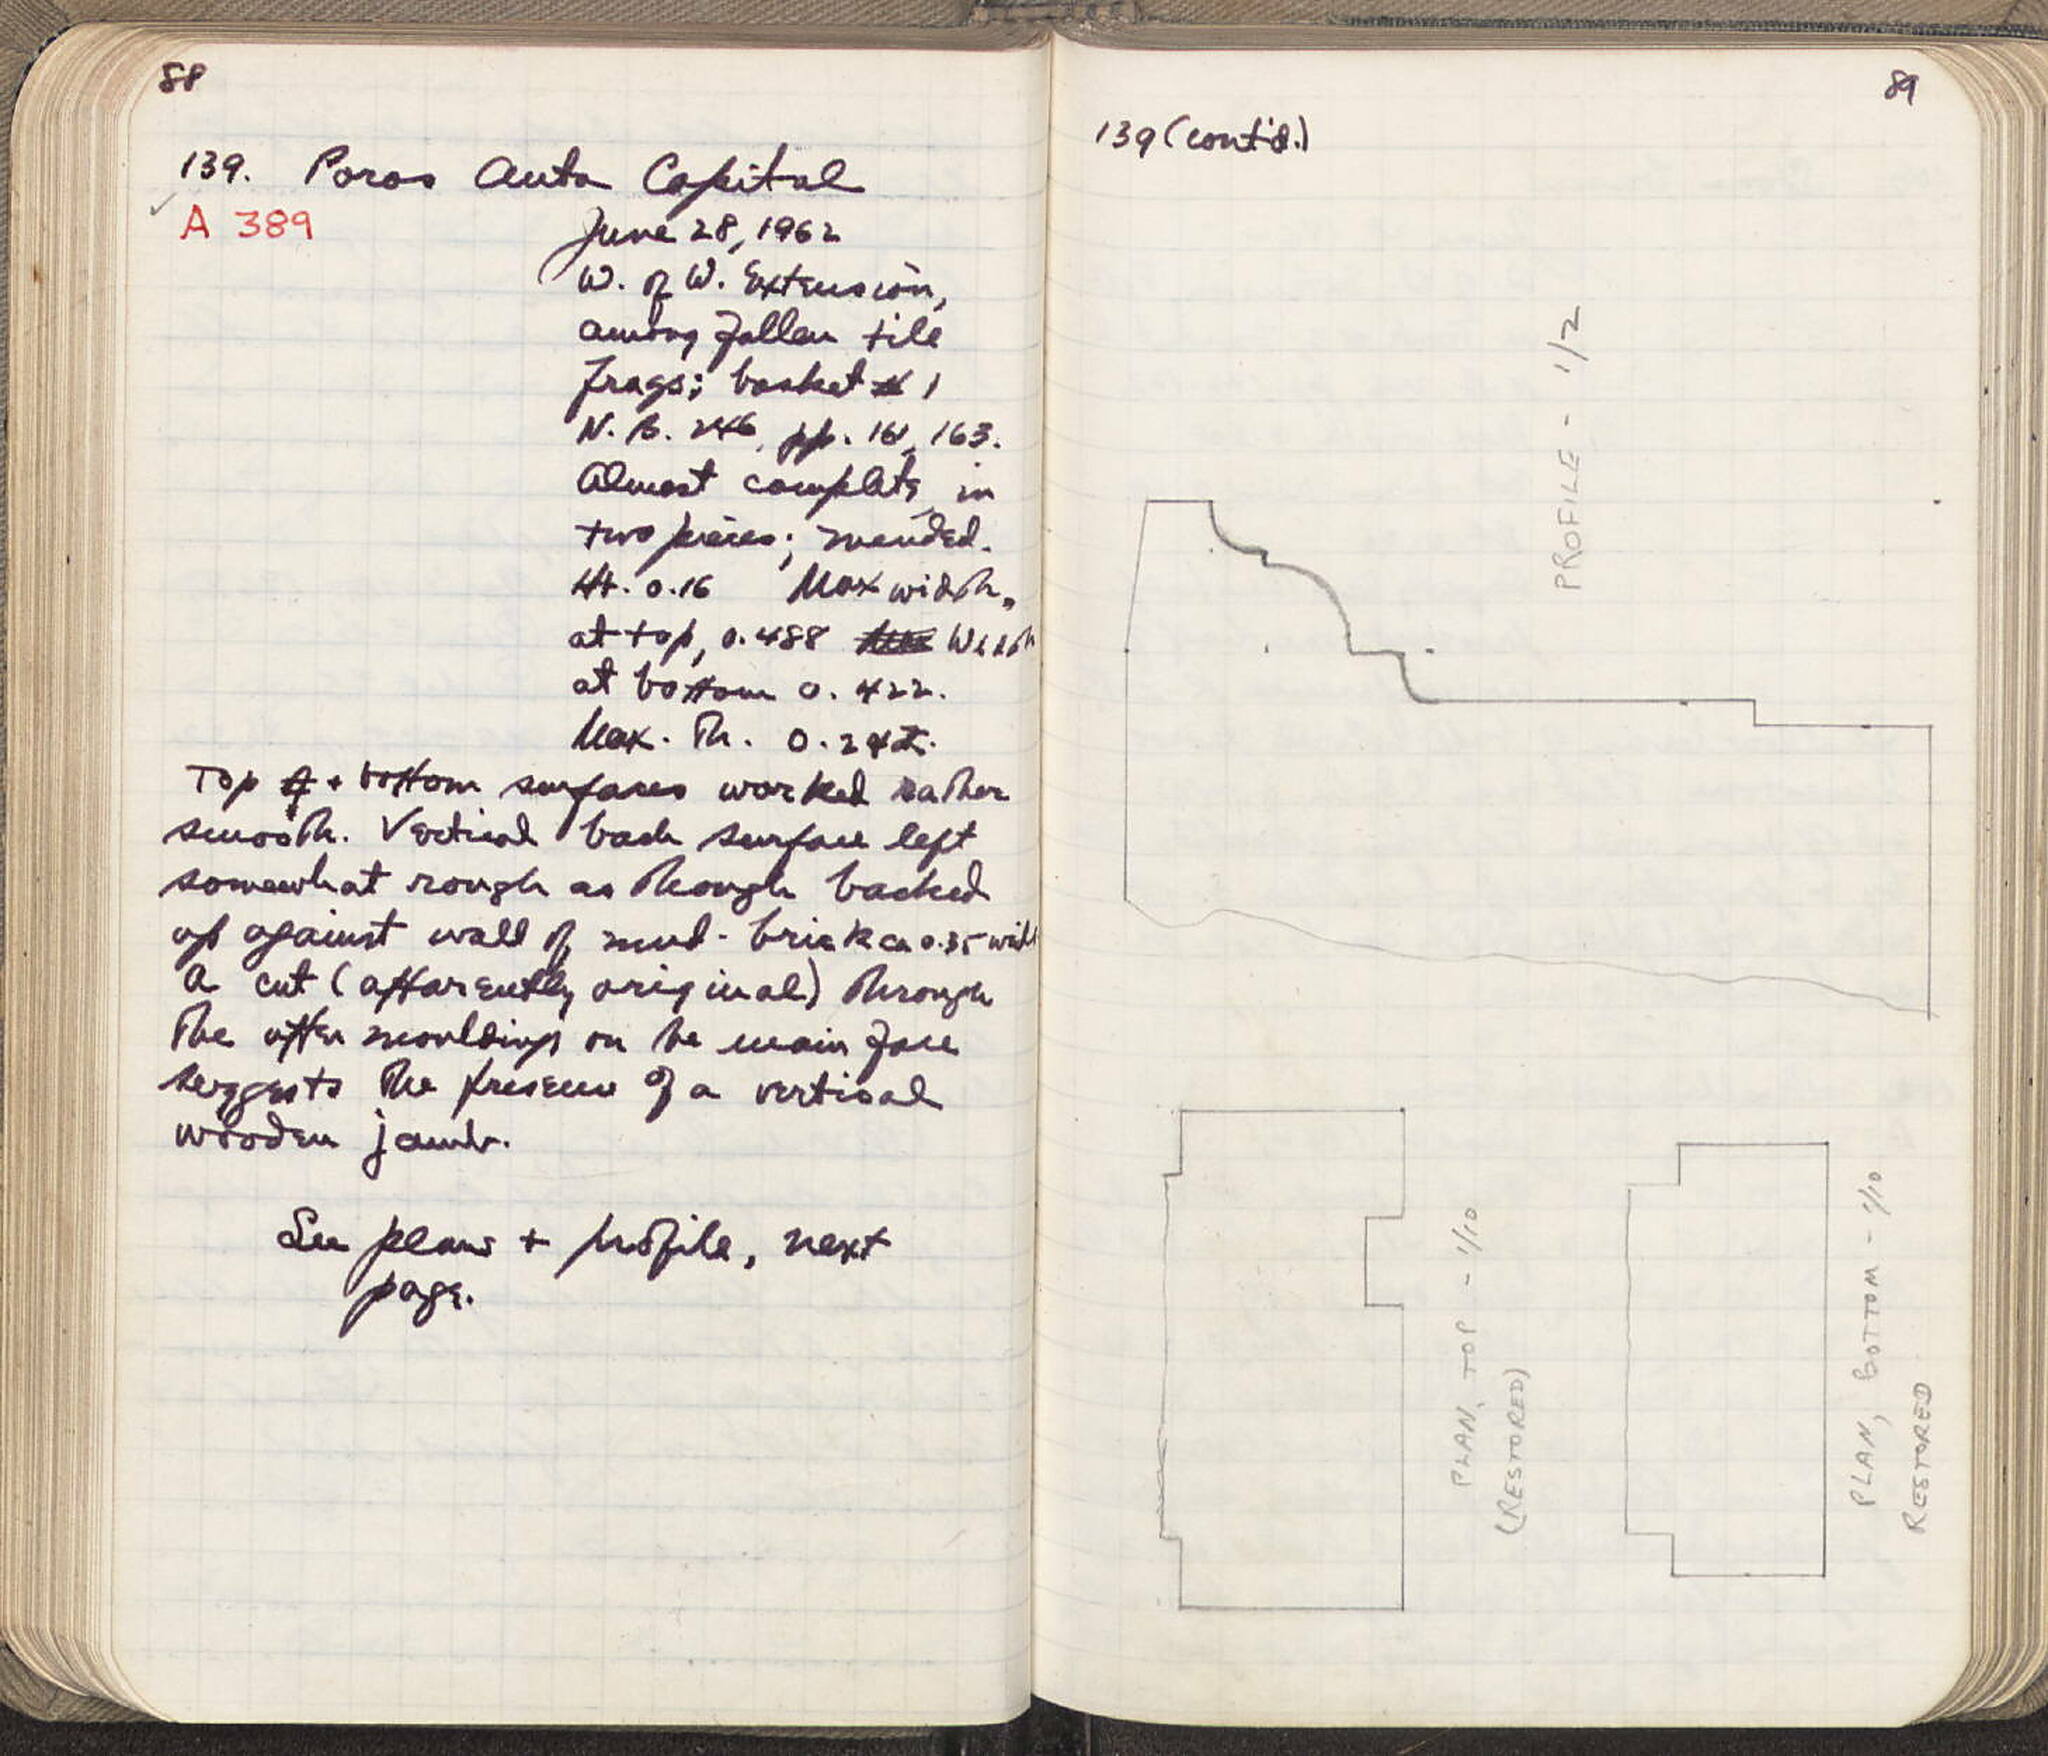 88
139. Poros Anta Capital
A 389
June 28, 1962
W. of W. Extension,
among fallen tile
frags; basket # 1
N. B. 246, pp. 161, 163.
Almost complete, in
two pieces; mended.
Ht. 0.16 Max width,
at top, 0.488 Width
at bottom 0.422.
Max. Th. 0.242.
Top + bottom surfaces worked rather
smooth. Vertical back surface left
somewhat rough as though backed
up against wall of mud-brick ca 0.35 wide
A cut (apparently original) through
the upper mouldings on the main face
suggests the presence of a vertical
wooden jamb.
See plans + profile, next
page.
89
139 (cont'd.)
PROFILE - 1/2
PLAN, TOP - 1/10
(RESTORED)
PLAN, BOTTOM - 1/10
RESTORED